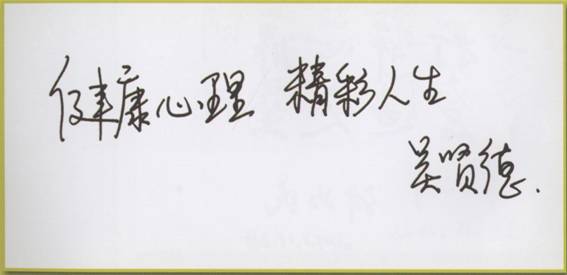 健康心理 精彩人生
吴贤德.